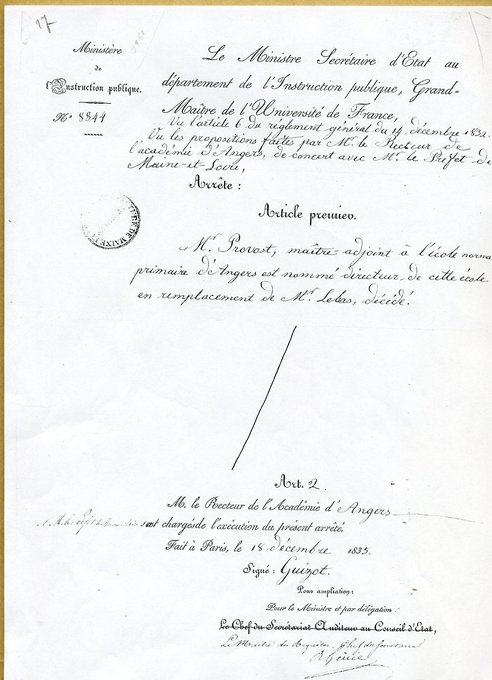 17
Ministère
de
l'Instruction publique.
N° 8844
Le Ministre Secrétaire d'Etat au
département de l'Instruction publique, Grand-
Maître de l'Université de France,
Vu l'article 6 du règlement général du 14 décembre 1832.
Vu les propositions faites par Mr. le Recteur de
l'académie d'Angers, de concert avec Mr. le Préfet de
Maine-et-Loire,
Arrête :
Article premier.
Mr. Provost, maître adjoint à l'école norma
primaire d'Angers est nommé directeur de cette école
en remplacement de Mr. Lebas, décédé.
Art. 2
M. le Recteur de l'Académie d'Angers
et M. le Préfet de sont chargés de l'exécution du présent arrêté.
Fait à Paris, le 18 décembre 1835.
Signé : Guizot.
Pour ampliation :
Pour le Ministre et par délégation :
Le Chef du Secrétariat Auditeur au Conseil d'Etat,
Le Maître des Requêtes, Chef du